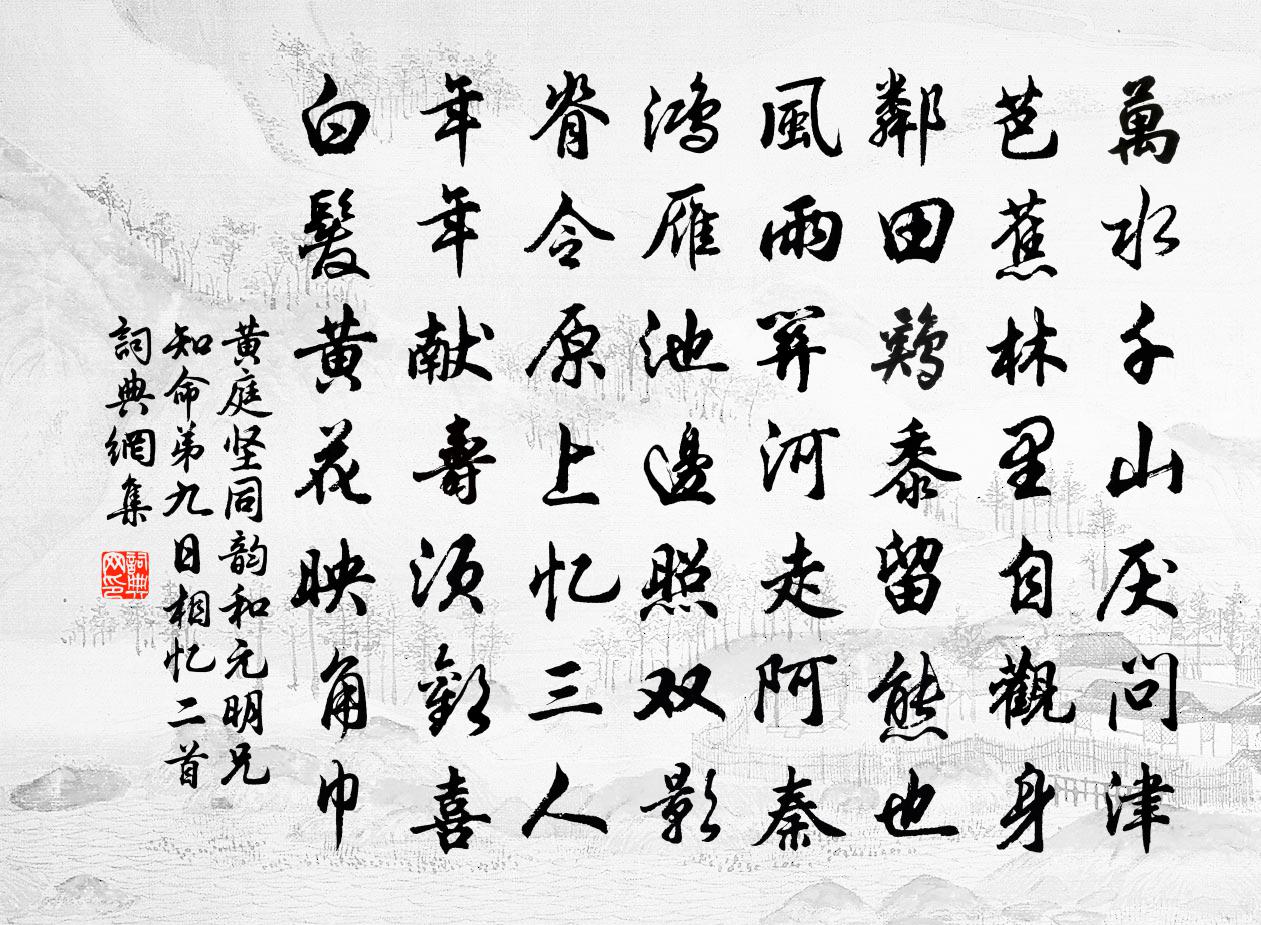 萬水千山厌問津
芭蕉林里自觀身
鄰田鶏黍留熊也
風雨関河走阿秦
鴻雁池邊照双影
脊令原上忆三人
年年献壽須歡喜
白髮黄花映角巾
黄庭坚同韵和元明兄
知命弟九日相忆二首
詞典網集
詞典网印